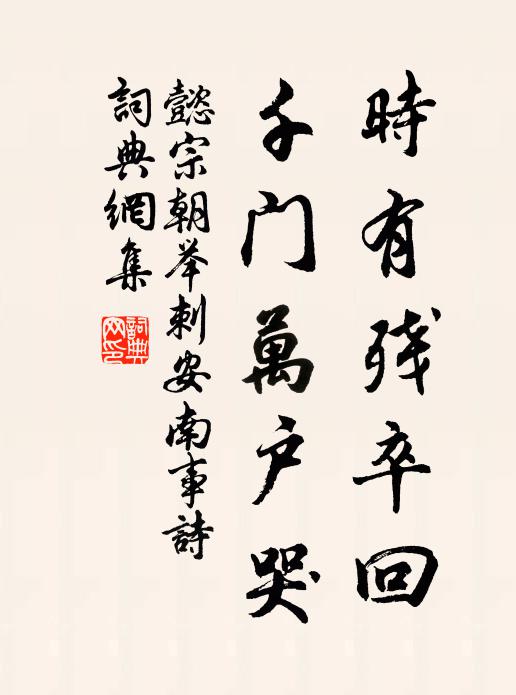 時有残卒回
千门萬户哭
懿宗朝举刺安南事詩
詞典網集
詞典网印